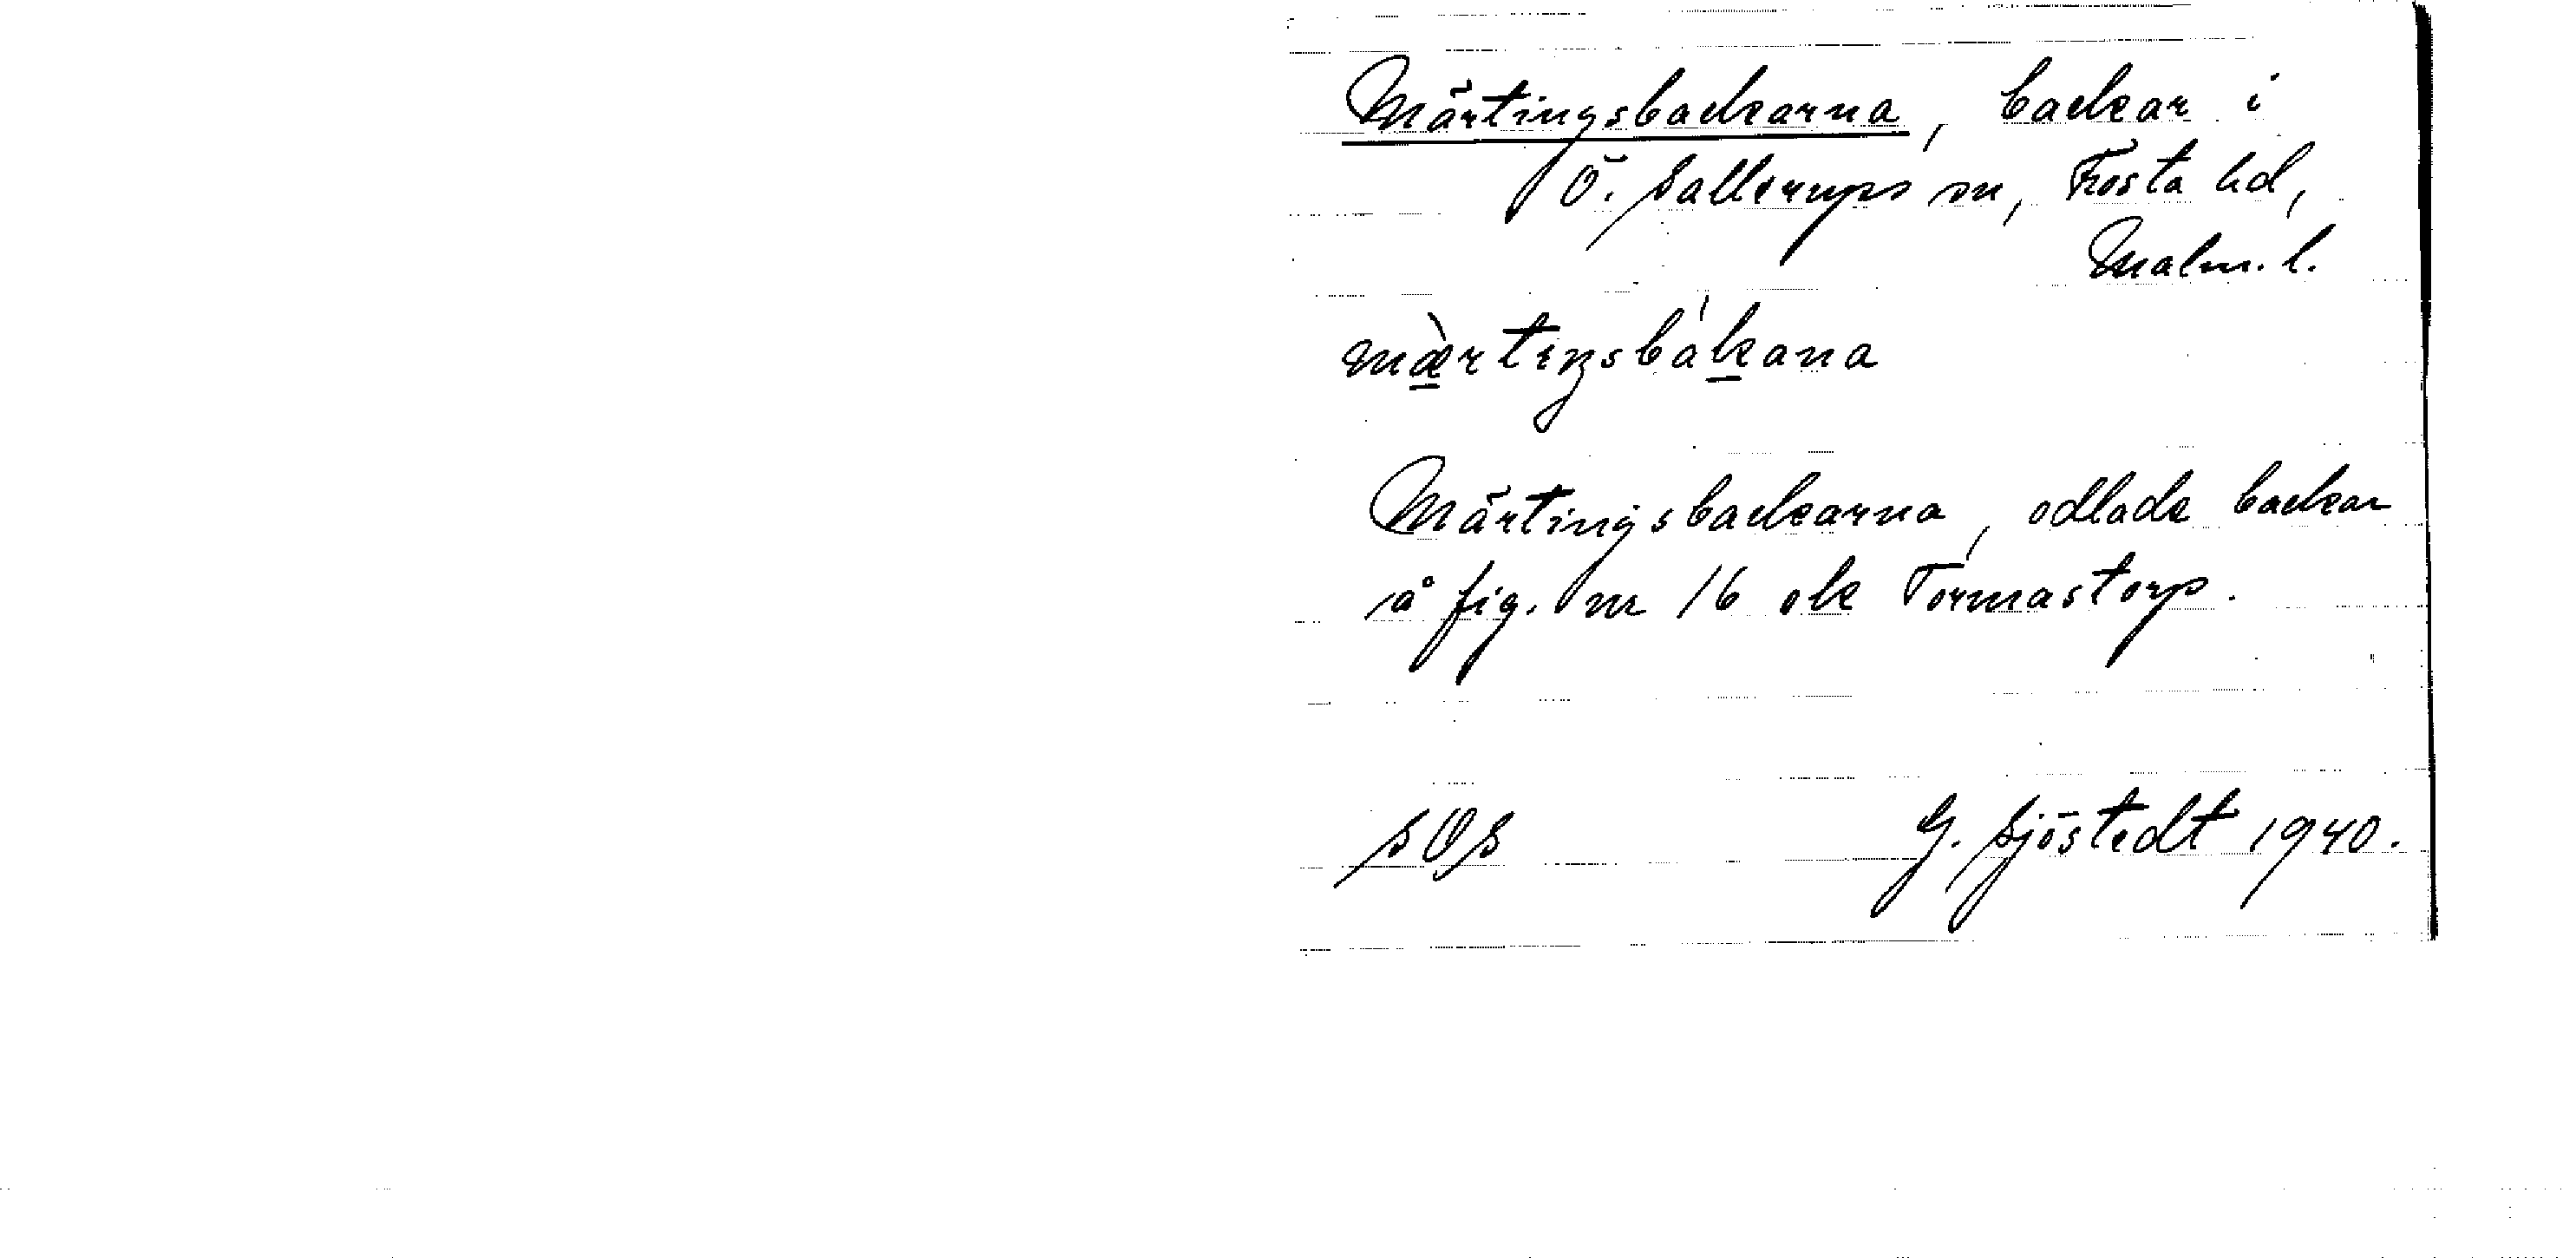 Märtingsbackarna, backar i
Ö. Sallerups sn, Frosta hd,
Malm. l.
mæ̀rtıŋsbákana
Märtingsbackarna, odlade backar
å fig. nr 16 ok Tormastorp.
SOS G. Sjöstedt 1940.